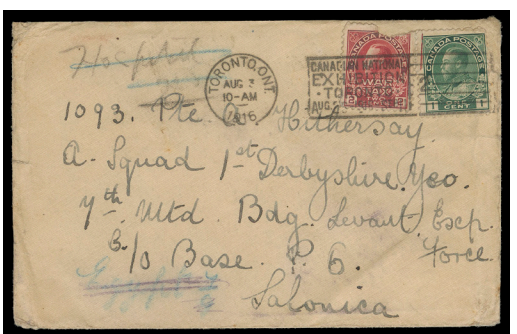 Hospital
TORONTO, ONT.
AUG 3
10-AM
1916
CANADIAN NATIONAL
EXHIBITION
TORONTO
AUG.
CANADA POSTAGE
WAR TAX
CANADA POSTAGE
1 CENT 1
1093. Pte. Hithersay
A. Squad 1st Derbyshire Yeo.
7th. Mtd. Bdg. Levant. Exp.
Force.
C/o Base. P 6.
Salonica